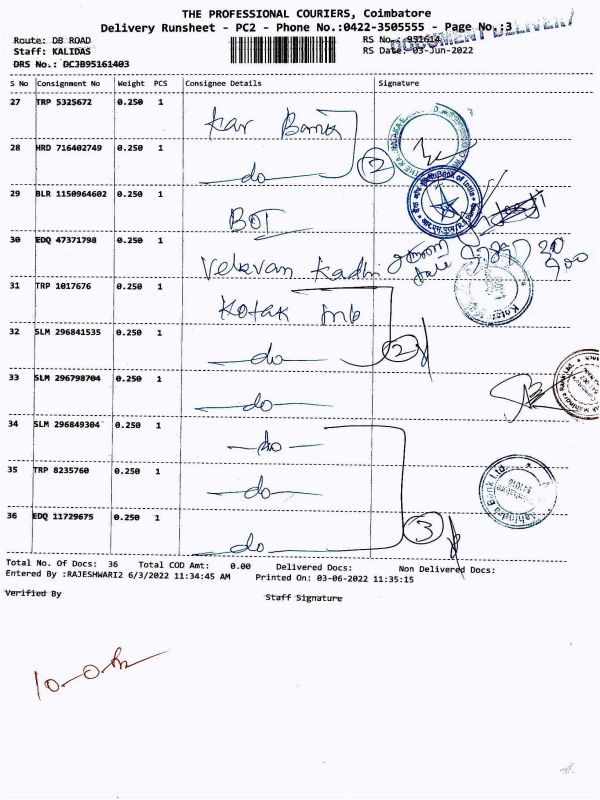 THE PROFESSIONAL COURIERS, Coimbatore
Delivery Runsheet - PC2 - Phone No.:0422-3505555 - Page No.:3
DOCUMENT DELIVERY
Route: DB ROAD
RS No.: 951614
Staff: KALIDAS
RS Date: 03-Jun-2022
DRS No.: DCJB95161403
S No Consignment No Weight PCS Consignee Details Signature
27 TRP 5325672 0.250 1 Kar Bank
28 HRD 716402749 0.250 1 do
2
29 BLR 1150964602 0.250 1 BOI
Bank of India
30 EDQ 47371798 0.250 1 Velavan Kadhi
31 TRP 1017676 0.250 1 Kotak
32 SLM 296841535 0.250 1 do
2
33 SLM 296798704 0.250 1 do
34 SLM 296849304 0.250 1 do
35 TRP 8235760 0.250 1 do
36 EDQ 11729675 0.250 1 do
3
Total No. Of Docs: 36 Total COD Amt: 0.00 Delivered Docs: Non Delivered Docs:
Entered By :RAJESHWARI2 6/3/2022 11:34:45 AM Printed On: 03-06-2022 11:35:15
Verified By Staff Signature